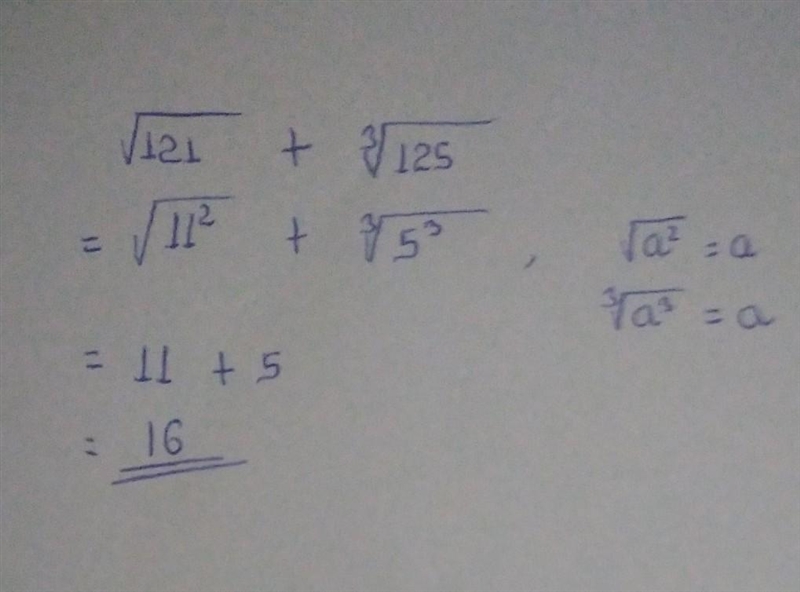 √121 + ∛125
= √11² + ∛5³ , √a² = a
∛a³ = a
= 11 + 5
= 16